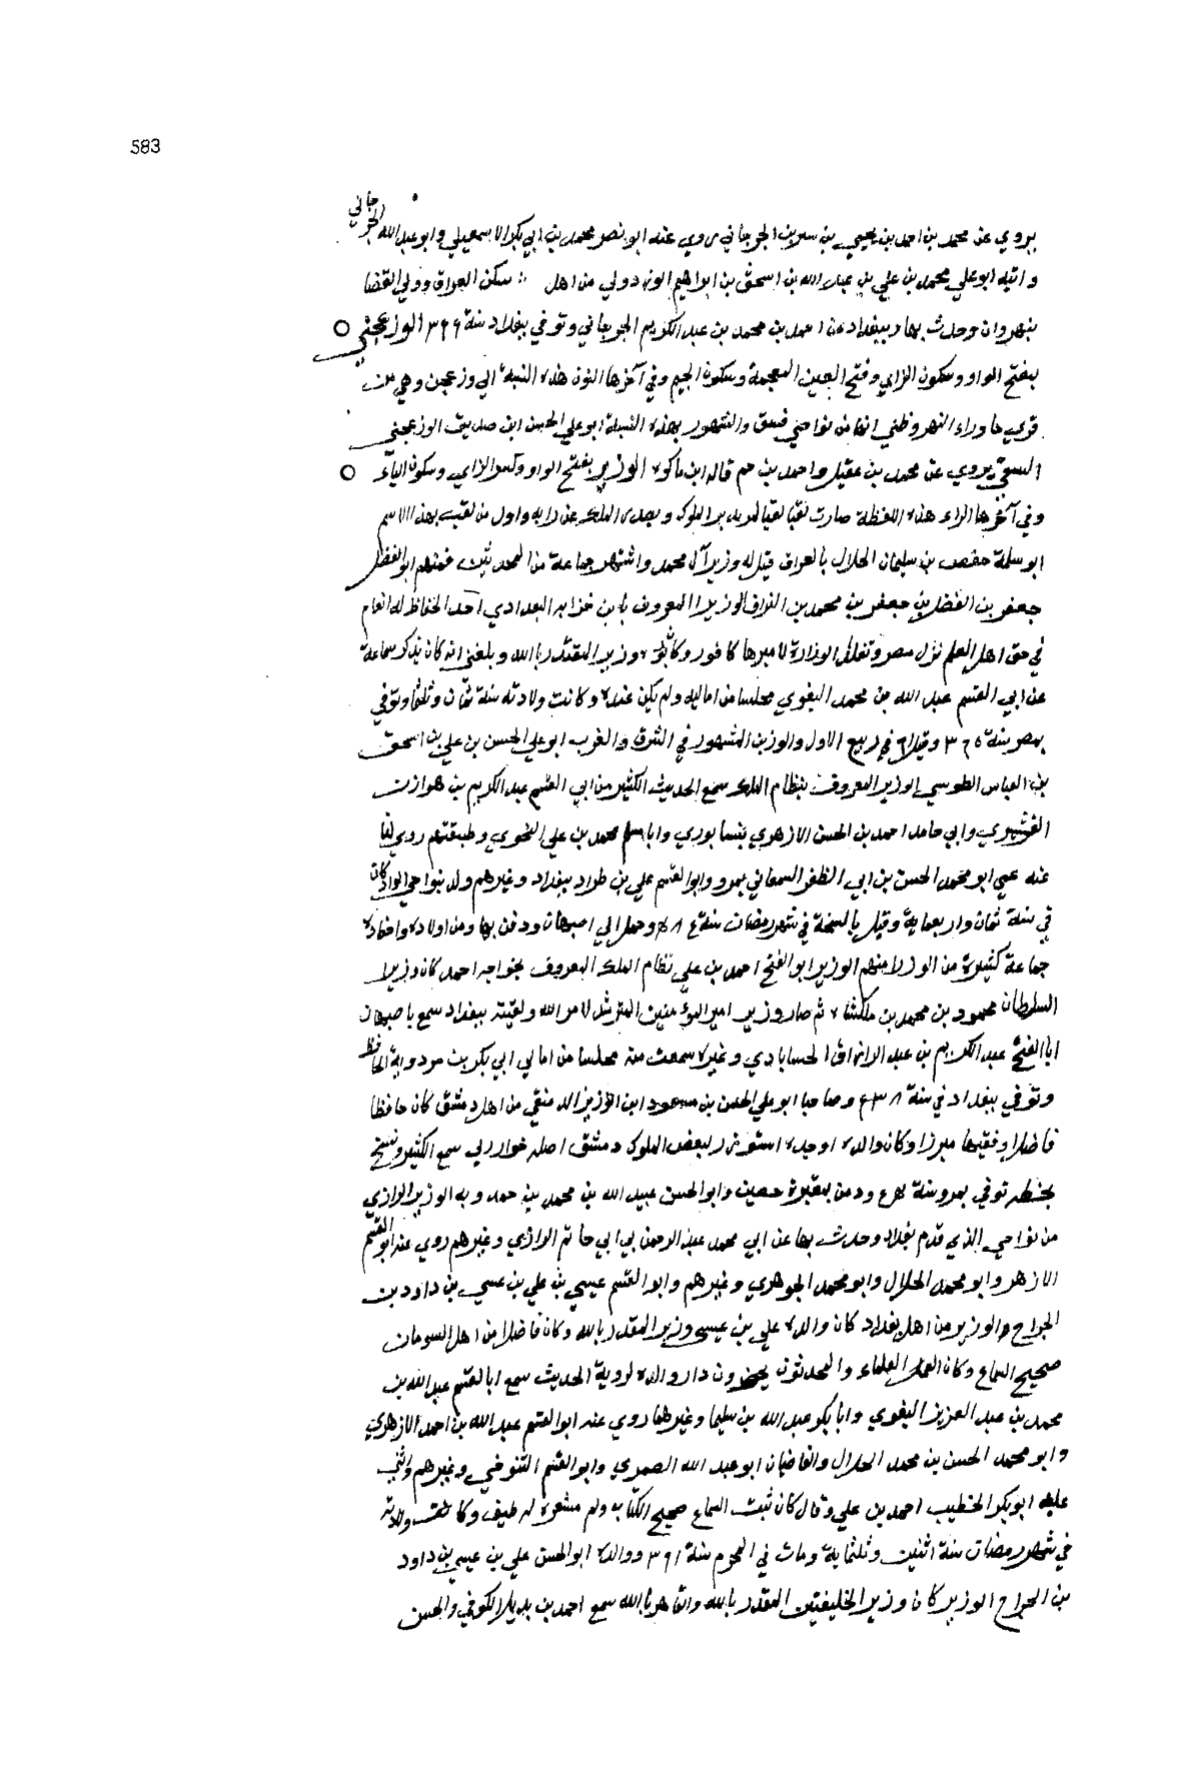 583
يروي عن محمد بن احمد بن يحيى بن الجرجاني روي عنه ابو نصر محمد بن ابي بكر الاسمعيلي وابو عبد الله الجرجاني
وابنه ابو علي محمد بن علي بن عبد الله بن اسحق بن ابراهيم من اهل سكن العراق وولي القضا
بنهروان وحدث بها وببغداد عن احمد بن محمد بن عبد الكريم الجرجاني وتوفي ببغداد سنة ٣٦٦ الوزغجني
بفتح الواو وسكون الزاي وفتح الغين المعجمة وسكون الجيم وفي آخرها النون هذه النسبة الى وزغجن وهي من
قري ما وراء النهر وظني انها من نواحي نسف والمشهور بهذه النسبة ابو علي الحسن ابن صديق الوزغجني
يروي عن محمد بن عقيل واحمد بن حم قاله ابن ماكولا الوزير بفتح الواو وكسر الزاي وسكون الياء
وفي آخرها الراء هذه اللفظة صارت لقبا لمدبر الملوك واول من لقب بهذا الاسم
ابو سلمة حفص بن سليمان الخلال بالعراق قيل له وزير آل محمد واشتهر جماعة من المحدثين فمنهم ابو الفضل
جعفر بن الفضل بن جعفر بن محمد بن الفرات الوزير المعروف بابن البغدادي احد الحفاظ له انعام
في حق اهل العلم نزل مصر وتقلد الوزارة لاميرها كافور وكان ابوه وزير المقتدر بالله وبلغني انه كان يذكر سماعه
عن ابي القسم عبد الله بن محمد البغوي مجلسا من اماليه ولم يكن عنده وكانت ولادته سنة ثمان وثلثما وتوفي
بمصر سنة وقيل في ربيع الاول والوزير المشهور في الشرق والغرب ابو علي الحسن بن علي بن اسحق
بن العباس الطوسي الوزير المعروف بنظام الملك سمع الحديث الكثير من ابي القسم عبد الكريم بن هوازن
القشيري وابي حامد احمد بن الحسن الازهري بنيسابوري وابا محمد بن علي النحوي وطبقتهم روي لنا
عنه عمي ابو محمد الحسن بن ابي المظفر السمعاني بمرو وابو القسم علي بن طراد ببغداد وغيرهم ولد بنواحي
في سنة ثمان واربعماية وقيل في شهر رمضان سنة وحمل الي اصبهان ودفن بها ومن اولاده واحفاده
جماعة كثيرة من الوزرا منهم الوزير ابو الفتح احمد بن علي نظام الملك المعروف بخواجه احمد كان وزير
السلطان محمود بن محمد بن ملكشاه ثم صار وزير امير المؤمنين المسترشد لامر الله ولقيته ببغداد سمع باصبهان
ابا الفتح عبد الكريم بن عبد الرزاق الحسابادي وغيره سمعت منه مجلسا من امالي ابي بكر بن مردوية الحافظ
وتوفي ببغداد في سنة وصاحبنا ابو علي الحسن بن مسعود ابن الوزير الدمشقي من اهل دمشق كان حافظا
فاضلا وفقيها مبرزا وكان والده او جده استوزر لبعض الملوك دمشق اصله سمع الكثير ونسخ
بخطه توفي بمرو سنة ودفن بمقبرة حصين وابو الحسن عبيد الله بن محمد بن حمدويه الوزير الرازي
من نواحي الذي قدم بغداد وحدث بها عن ابي محمد عبد الرحمن بن ابي حاتم الرازي وغيرهم روي عنه ابو القسم
الازهر وابو محمد الخلال وابو محمد الجوهري وغيرهم وابو القسم عيسى بن علي بن عيسى بن داود بن
الجراح الوزير من اهل بغداد كان والده علي بن عيسى وزير المقتدر بالله وكان فاضلا من اهل
صحيح السماع وكان العلماء والمحدثون يحضرون دار والده لروية الحديث سمع ابا القسم عبد الله بن
محمد بن عبد العزيز البغوي وابا بكر عبد الله بن سليما وغيرهما روي عنه ابو القسم عبد الله بن احمد الازهري
وابو محمد الحسن بن محمد الخلال والقاضيان ابو عبد الله الصمري وابو القسم التنوخي وغيرهم واثني
عليه ابو بكر الخطيب احمد بن علي وقال كان ثبت السماع صحيح الكتاب وله ولادته
في شهر رمضان سنة اثنين وثلثماية ومات في المحرم سنة ٣٩١ ووالده ابو الحسن علي بن عيسى بن داود
بن الجراح الوزير كان وزير الخليفتين المقتدر بالله والقاهر بالله سمع احمد بن بديل الكوفي والحسن